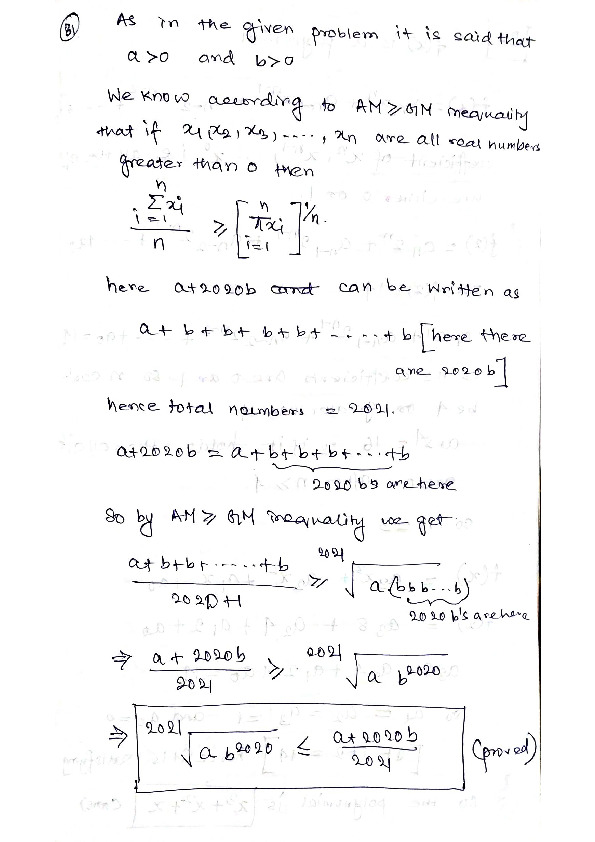 B1 As in the given problem it is said that
a>0 and b>0
We know according to AM ≥ GM inequality
that if x1, x2, x3, ----, xn are all real numbers
greater than 0 then
\frac{\sum_{i=1}^{n} xi}{n} ≥ [\prod_{i=1}^{n} xi]^{1/n}.
here a+2020b can be written as
a+b+b+b+b+-----+b [here there
are 2020b]
hence total noumbers = 2021.
a+2020b = a+b+b+b+...+b
2020 b's are here
So by AM ≥ GM inequality we get
\frac{a+b+b+-----+b}{2020+1} ≥ \sqrt[2021]{a(bbb...b)}
2020 b's are here
⇒ \frac{a+2020b}{2021} ≥ \sqrt[2021]{a b^{2020}}
⇒ \sqrt[2021]{a b^{2020}} ≤ \frac{a+2020b}{2021} (proved)